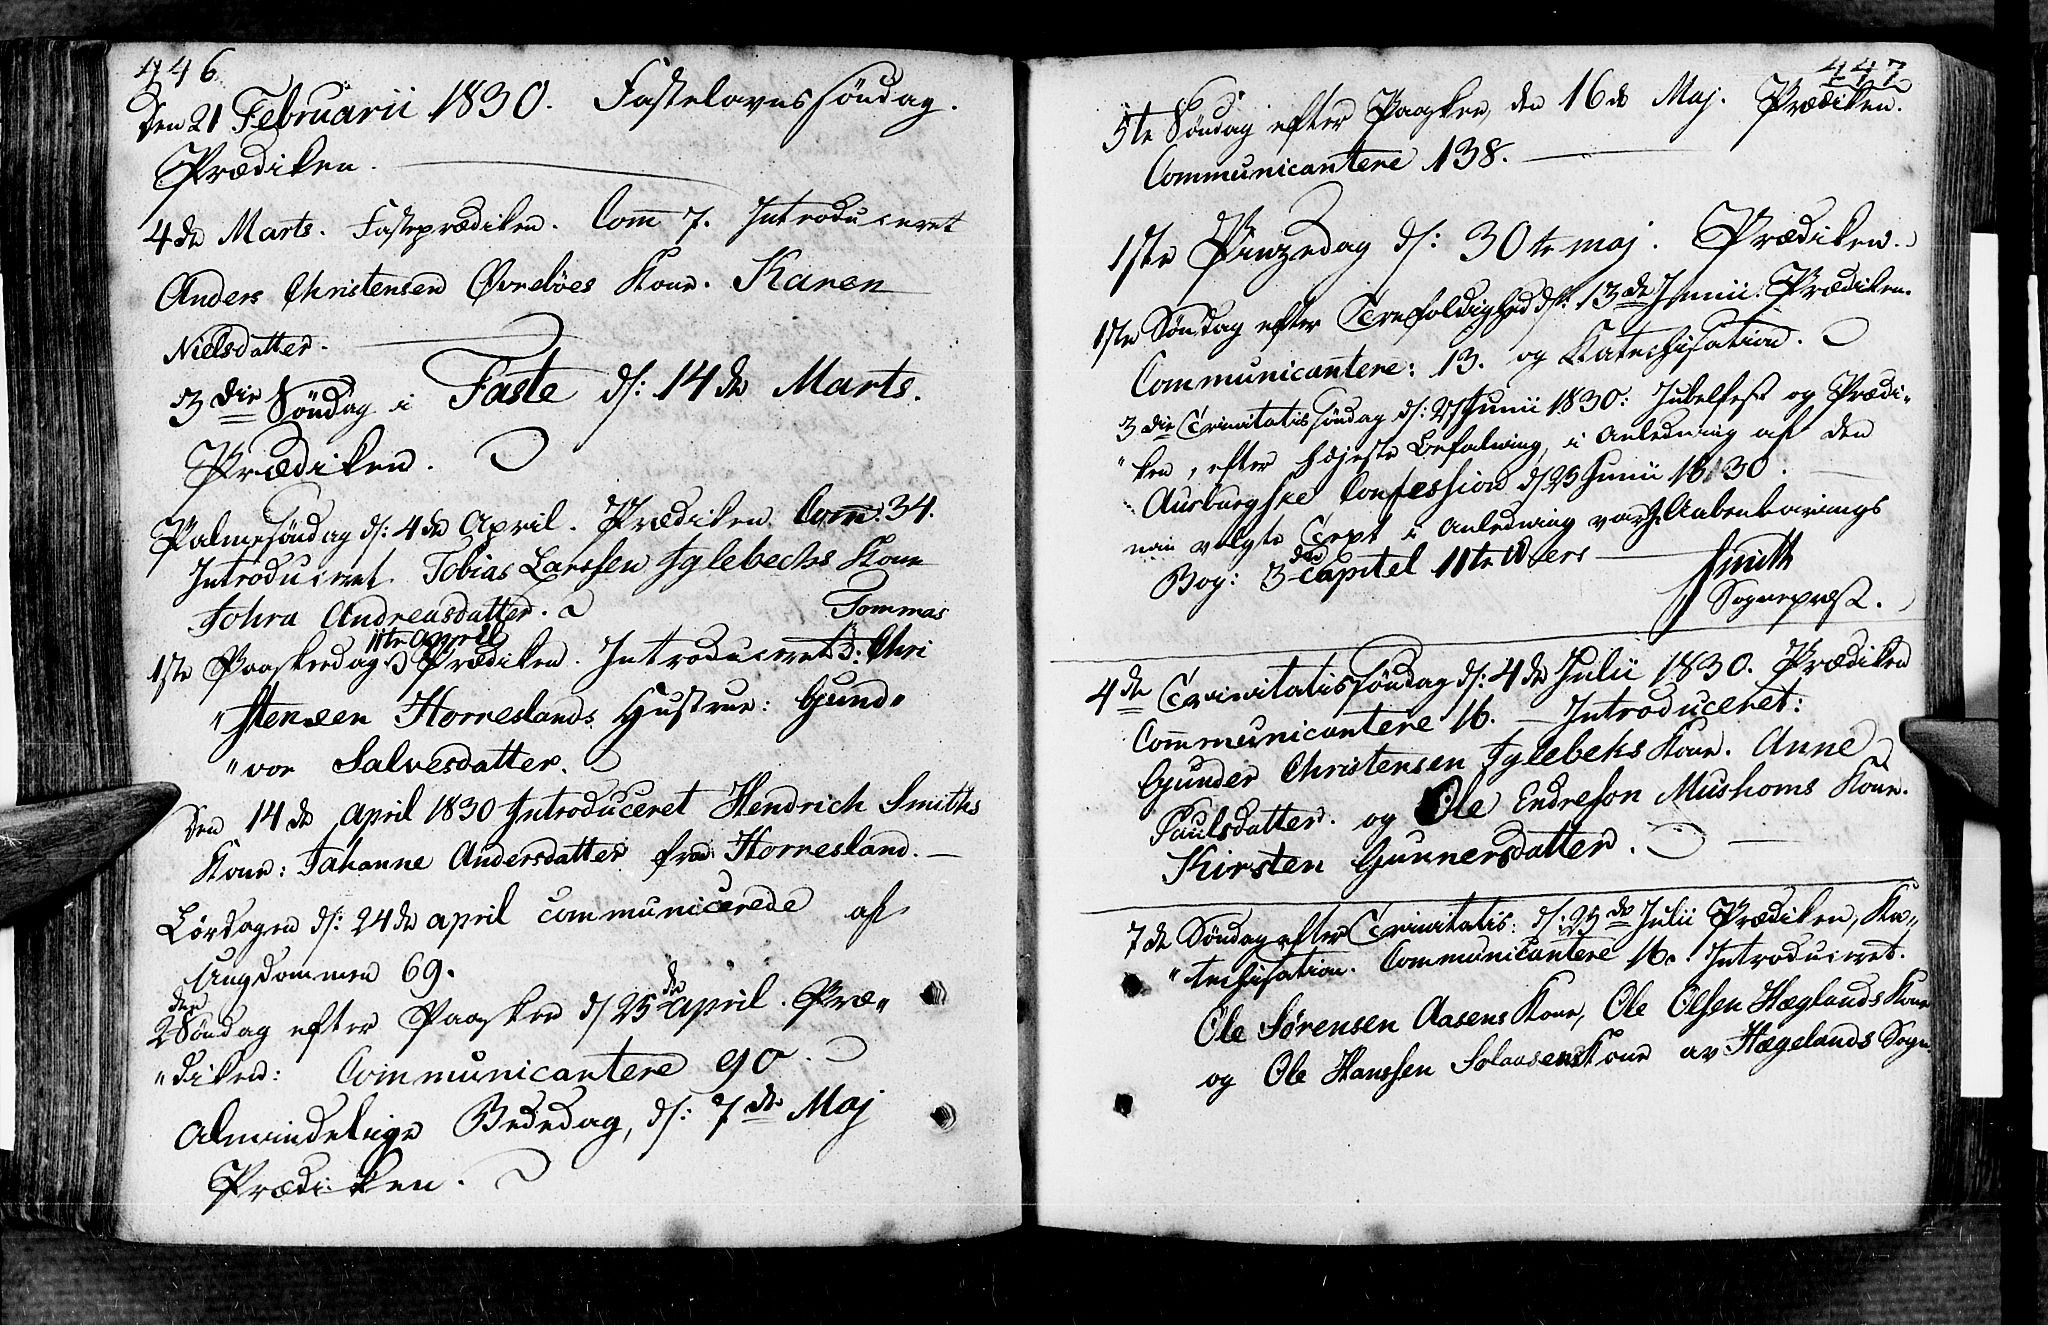 446
Den 21 Februarii 1830. Fastelavnssöndag.
Prædiken.
4de Marts. Fasteprædiken. Com 7. Introduceret
Anders Christensen Øvreböes Kone. Karen
Nielsdatter.
3die Söndag i Faste d: 14de Marts.
Prædiken.
Palmesöndag d: 4de April. Prædiken. Com. 34.
Introduceret. Tobias Larssen Iglebechs Kone
Tohra Andreasdatter. Tommas
11te April
1ste Paaskedag Prædiken. Introduceret: Chri
"stensen Horreslands Hustrue: Gund"
"vor Salvesdatter.
Den 14de April 1830 Introduceret Hendrich Smiths
Kone: Johanne Andersdatter fra Horresland.
Lördagen d: 24de april communicerede af
Ungdommen 69.
2den Söndag efter Paaske d 25de april. Præ"
"diken: Communicantere 90.
Almindelige Bededag, d: 7de Maj
Prædiken.
447
5te Söndag efter Paaske, den 16de Maj. Prædiken.
Communicantere 138.
1ste Pinzedag d: 30te maj. Prædiken.
1ste Söndag efter Trefoldighed d: 13de Junii. Prædiken.
Communicantere: 13. og Katechisation.
3die Trinitatissöndag d: 27 Junii 1830: Jubelfest og Prædi"
"ken, efter højeste Befalning, i Anledning af den
Ausburgske Confession d 25 Junii 1830.
min valgte Text i Anledning var J. Aabenbarings
Bog: 3die Capitel 11te Vers
Smith
Sognepræst.
4de Trinitatissöndag d: 4de Julii 1830. Prædiken
Communicantere 16. Introduceret:
Gunder Christensen Iglebeks Kone. Anne
Paulsdatter. og Ole Endreson Mushoms Kone.
Kirsten Gunnersdatter.
7de Söndag efter Trinitatis: d: 25de Julii Prædiken, Ka"
"techisation. Communicantere 16. Introduceret.
Ole Sørensen Aasens Kone, Ole Olsen Hæglands Kone
og Ole Hanssen Solaasens Kone av Hægelands Sogn.